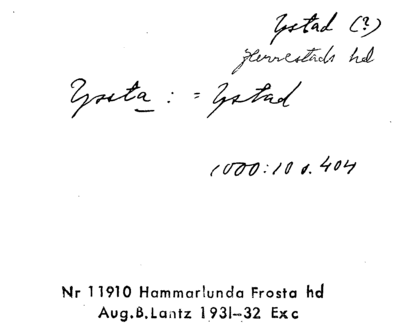 Ystad (?)
Herrestads hd
Yssta : = Ystad
1000:10 s. 404
Nr 11910 Hammarlunda Frosta hd
Aug.B.Lantz 1931-32 Exc